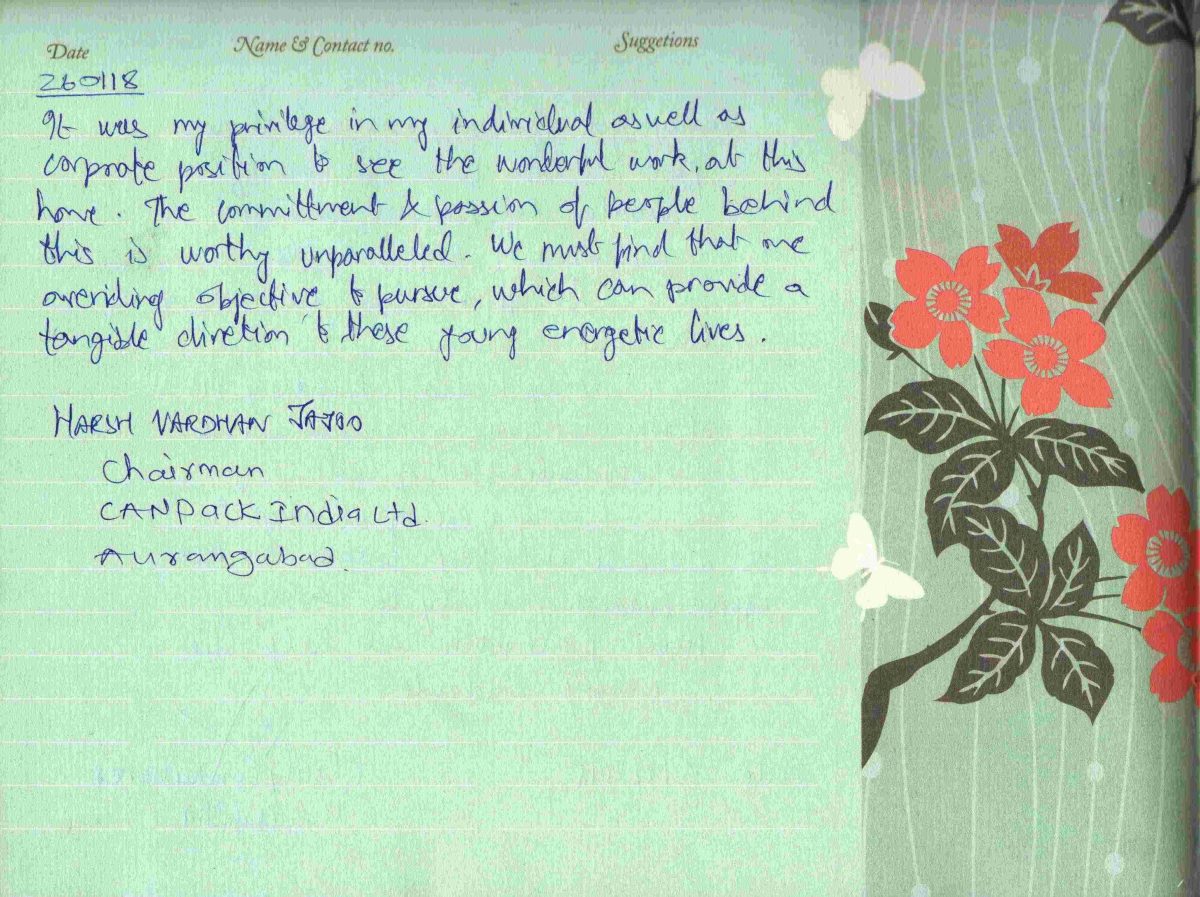 Date Name & Contact no. Suggetions
260118
It was my privilege in my individual aswell as
corporate position to see the wonderful work, at this
home. The committment & passion of people behind
this is worthy unparalleled. We must find that one
overiding objective to pursue, which can provide a
tangible diretion to these young energetic lives.
HARSH VARDHAN JAJOO
Chairman
CANPACK India Ltd.
Aurangabad.